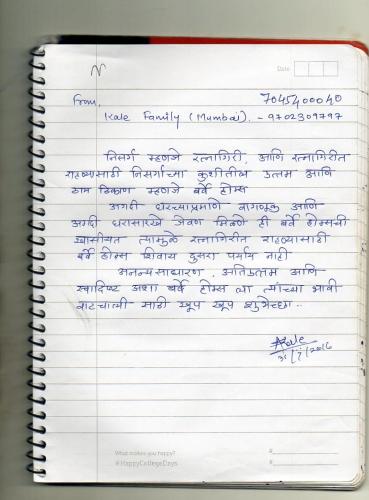 N
Date
From,
7045400040
Kale Family (Mumbai). - 9702309797
निसर्ग म्हणजे रत्नागिरी, आणि रत्नागिरीत
राहण्यासाठी निसर्गाच्या कुशीतील उत्तम आणि
ठाम ठिकाण म्हणजे बर्वे होम्स
अगदी घरच्याप्रमाणे वागणूक आणि
अगदी घरासारखे जेवण मिळणे ही बर्वे होम्सची
खासीयत त्यामुळे रत्नागिरीत राहण्यासाठी
बर्वे होम्स शिवाय दुसरा पर्याय नाही
अनन्यसाधारण, अतिउत्तम आणि
स्वादिष्ट अशा बर्वे होम्स ला त्यांच्या भावी
वाटचाली साठी खूप खूप शुभेच्छा..
Kale
/7/2016
What makes you happy?
#HappyCollegeDays
#
#